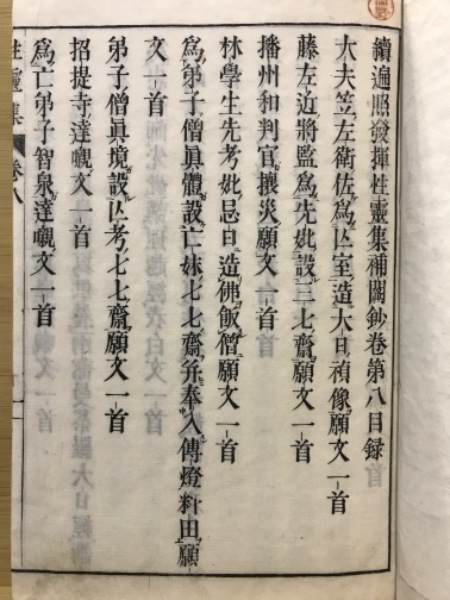 續遍照發揮性靈集補闕鈔卷第八目録
大夫笠左衛佐爲亡室造大日楨像願文一首
藤左近將監爲先妣設三七齋願文一首
播州和判官攘災願文一首
林學生先考妣忌日造佛飯僧願文一首
爲弟子僧眞體設亡妹七七齋并奉入傳燈料田願
文一首
弟子僧眞境設亡考七七齋願文一首
招提寺達嚫文一首
爲亡弟子智泉達嚫文一首
性靈集 卷八